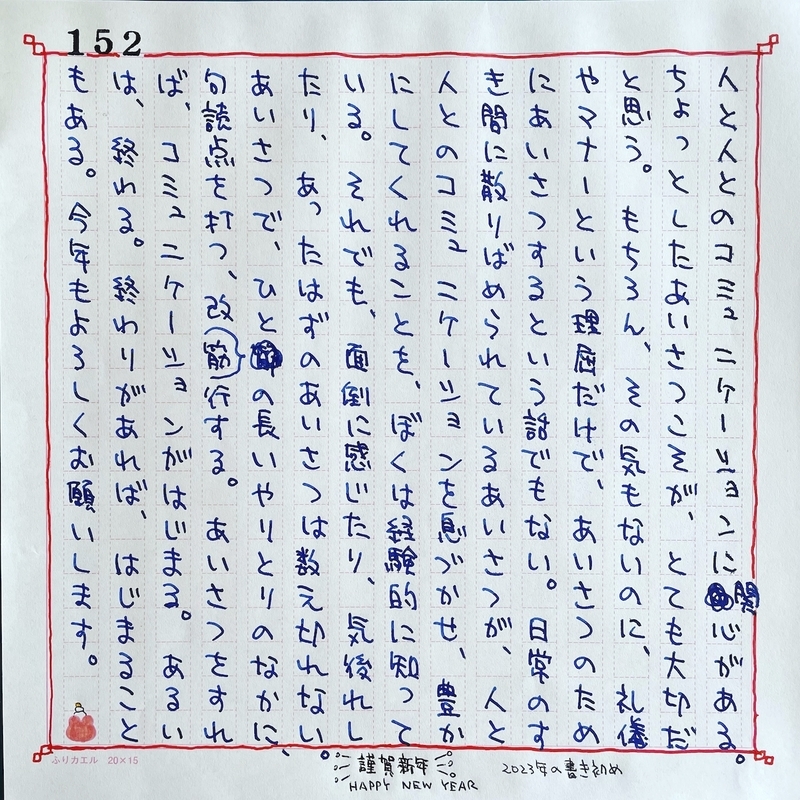 152
人と人とのコミュニケーションに関心がある。
ちょっとしたあいさつこそが、とても大切だ
と思う。もちろん、その気もないのに、礼儀
やマナーという理屈だけで、あいさつのため
にあいさつするという話でもない。日常のす
き間に散りばめられているあいさつが、人と
人とのコミュニケーションを息づかせ、豊か
にしてくれることを、ぼくは経験的に知って
いる。それでも、面倒に感じたり、気後れし
たり、あったはずのあいさつは数え切れない。
あいさつで、ひとの長いやりとりのなかに、
句読点を打つ、改筋行する。あいさつをすれ
ば、コミュニケーションがはじまる。あるい
は、終わる。終わりがあれば、はじまること
もある。今年もよろしくお願いします。
ふりカエル 20×15
謹賀新年
HAPPY NEW YEAR
2023年の書き初め